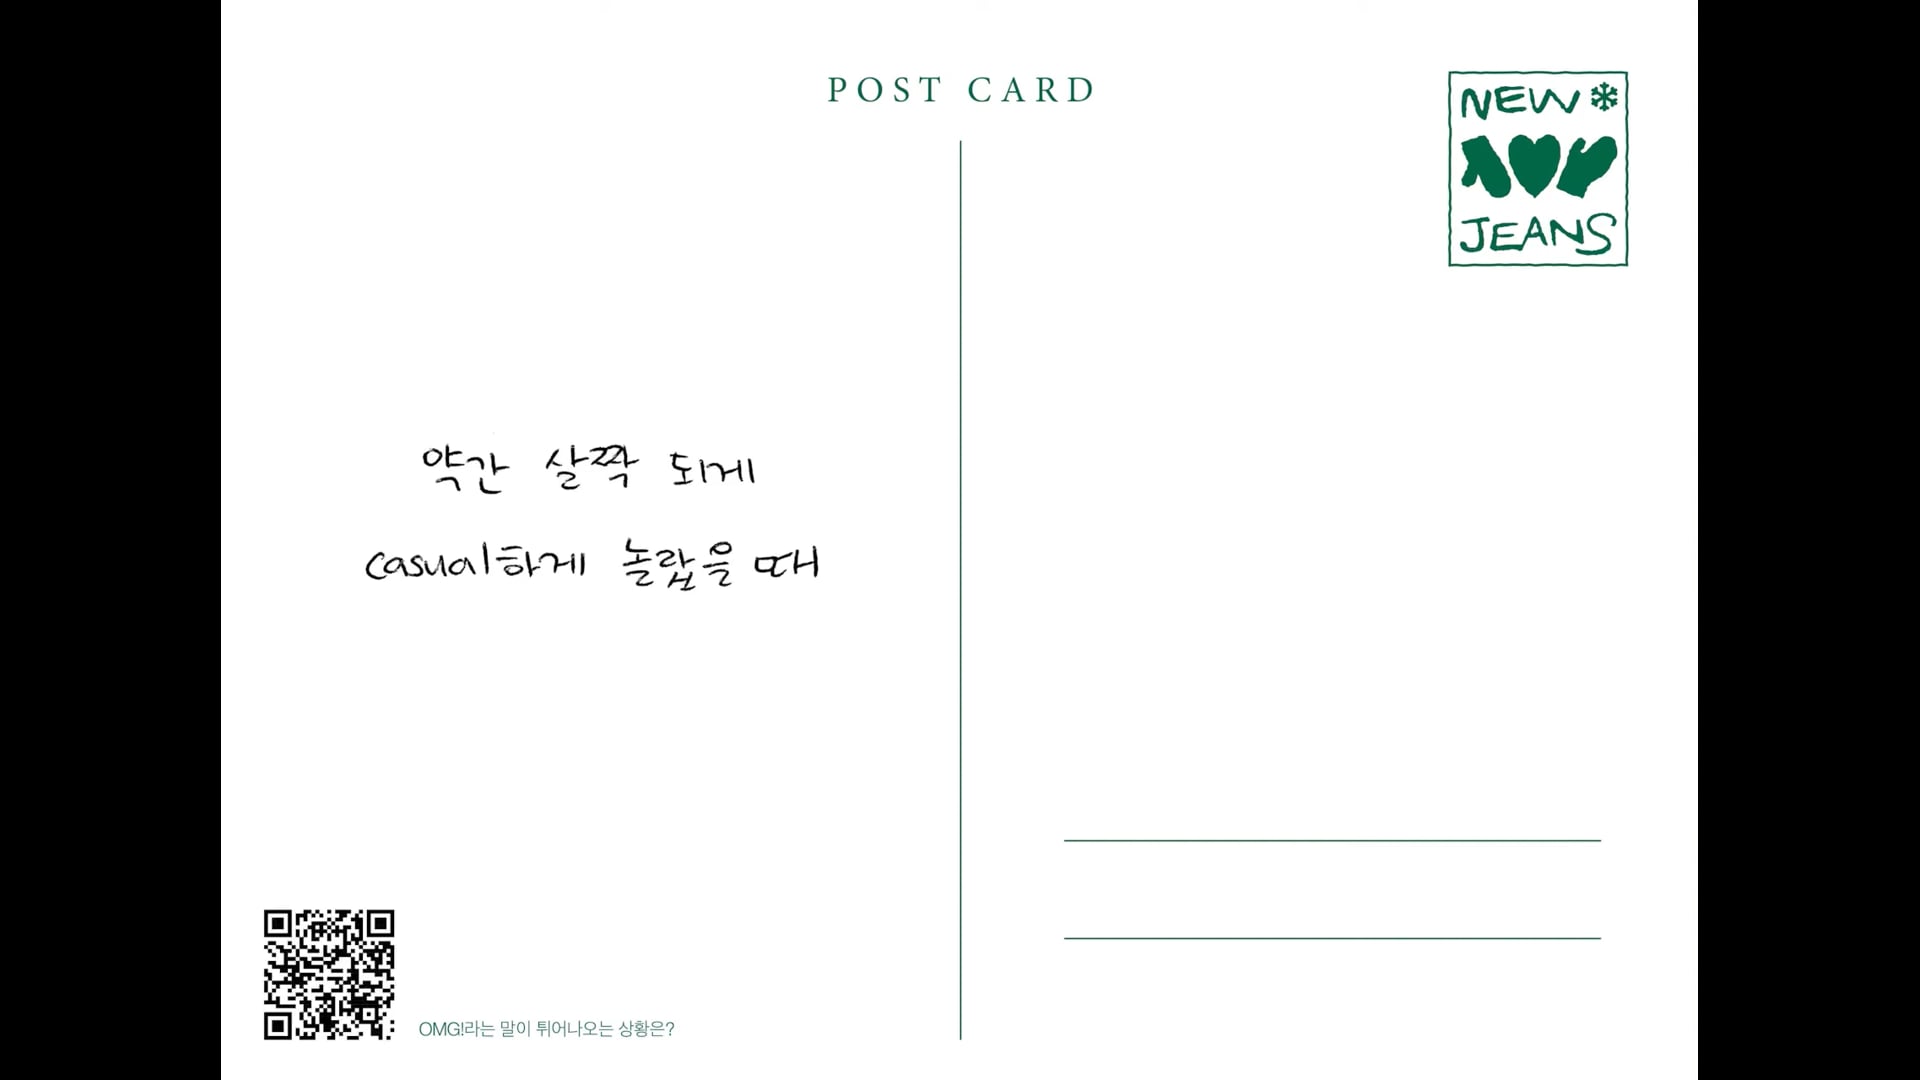 POST CARD
NEW
JEANS
약간 살짝 되게
casual하게 놀랐을 때
OMG!라는 말이 튀어나오는 상황은?